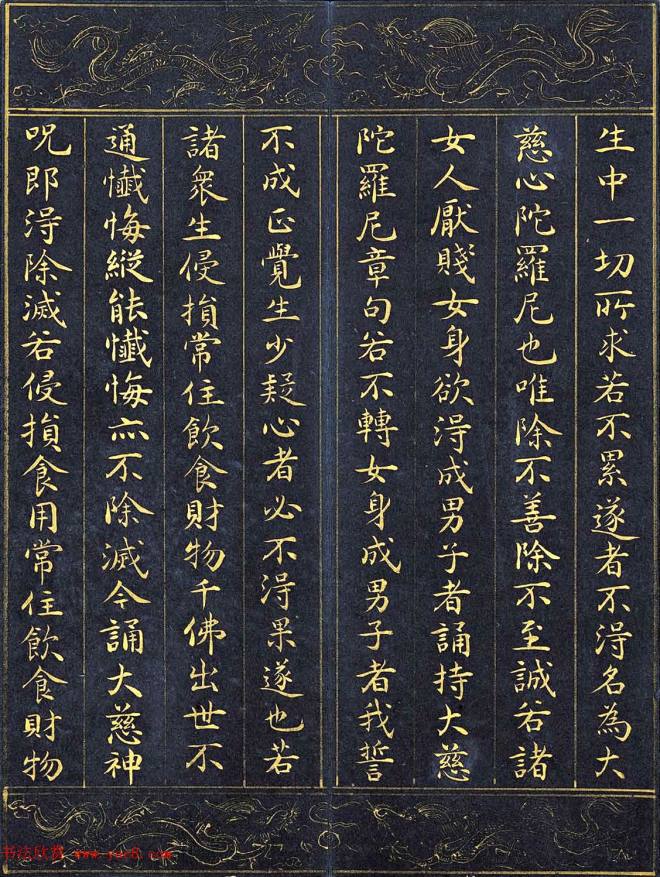 生中一切所求若不累遂者不淂名為大
慈心陀羅尼也唯除不善除不至誠若諸
女人厭賤女身欲淂成男子者誦持大慈
陀羅尼章句若不轉女身成男子者我誓
不成正覺生少疑心者必不淂果遂也若
諸眾生侵損常住飲食財物千佛出世不
通懺悔縱能懺悔亦不除滅今誦大慈神
呪即淂除滅若侵損食用常住飲食財物
书法欣赏 www.yac8.com